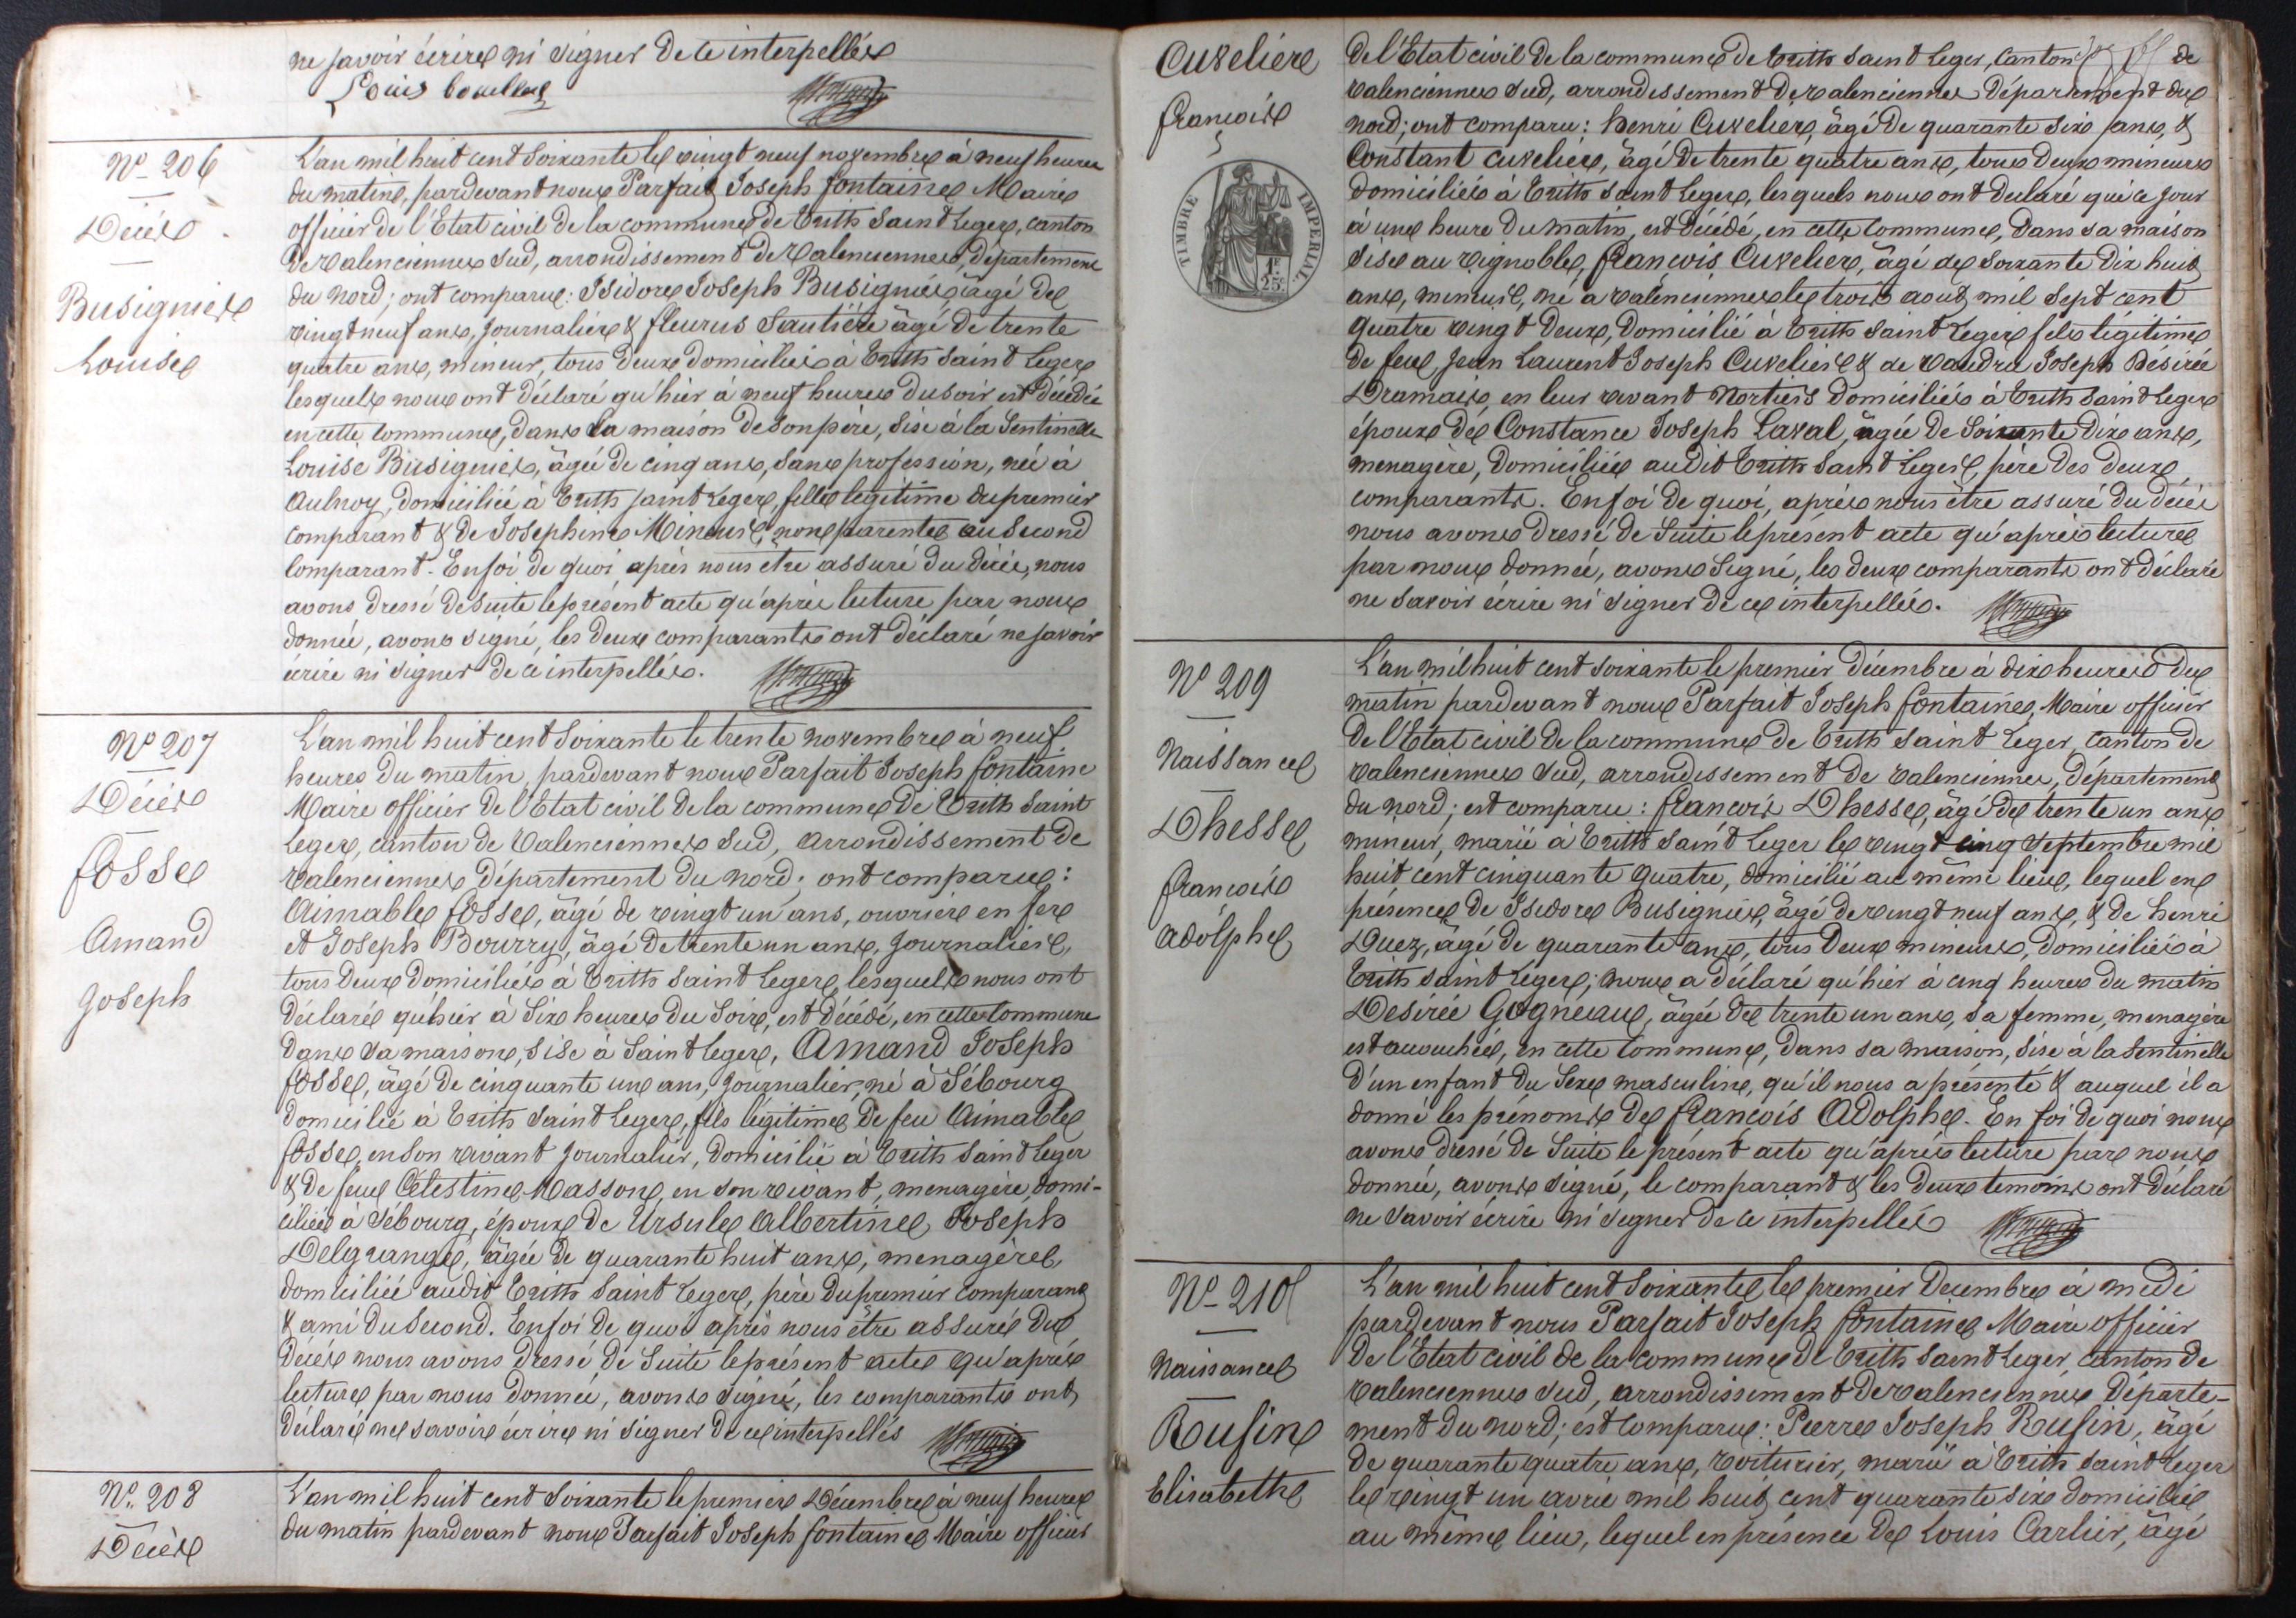 ne savoir écrire ni signer de ce interpellés
Louis
Nº 206
Décès
Busignies
Louise
L'an mil huit cent soixante le vingt neuf novembre à neuf heures
du matin, pardevant nous Parfait Joseph Fontaine Maire
officier de l'Etat civil de la commune de Trith Saint Leger, canton
de Valenciennes Sud, arrondissement de Valenciennes, département
du Nord; ont comparu: Isidore Joseph Busignies, âgé de
vingt neuf ans, journalier & Fleurus Sautière âgé de trente
quatre ans, mineur, tous deux domiciliés à Trith Saint Leger
lesquels nous ont déclaré qu'hier à neuf heures du soir est décédée
en cette commune, dans la maison de son père, sise à la Sentinelle
Louise Busignies, âgée de cinq ans, sans profession, née à
Aulnoy, domiciliée à Trith Saint Léger, fille légitime du premier
comparant & de Josephine Mineur, non parente au second
comparant. En foi de quoi après nous être assuré du décès, nous
avons dressé de suite le présent acte qu'après lecture par nous
donnée, avons signé, les deux comparants ont déclaré ne savoir
écrire ni signer de ce interpellés.
Nº 207
Décès
Fosse
Amand
Joseph
L'an mil huit cent soixante le trente novembre à neuf
heures du matin, pardevant nous Parfait Joseph Fontaine
Maire officier de l'Etat civil de la commune de Trith Saint
Leger, canton de Valenciennes Sud, arrondissement de
Valenciennes département du Nord; ont comparu:
Aimable Fosse, âgé de vingt un ans, ouvrier en fer
et Joseph Bourry, âgé de trente un ans, journalier,
tous deux domiciliés à Trith Saint Leger, lesquels nous ont
déclaré qu'hier à six heures du soir, est décédé, en cette commune
dans sa maison, sise à Saint Leger, Amand Joseph
Fosse, âgé de cinquante un ans, journalier, né à Sébourg
domicilié à Trith Saint Leger, fils légitime de feu Aimable
Fosse, en son vivant journalier, domicilié à Trith Saint Leger
& de feue Célestine Masson, en son vivant, menagère, domi-
ciliée à Sébourg, époux de Ursule Albertine Joseph
Delgrange, âgée de quarante huit ans, menagère,
domiciliée audit Trith Saint Leger, père du premier comparant
& ami du second. En foi de quoi après nous être assuré du
décès nous avons dressé de suite le présent acte qu'après
lecture par nous donnée, avons signé, les comparants ont
déclaré ne savoir écrire ni signer de ce interpellés
Nº 208
Décès
L'an mil huit cent soixante le premier Décembre à neuf heures
du matin pardevant nous Parfait Joseph Fontaine Maire officier
Cuvelier
François
TIMBRE IMPERIAL
1F
25c
de l'Etat civil de la commune de Trith Saint Leger, canton de
Valenciennes Sud, arrondissement de Valenciennes Département du
Nord; ont comparu: Henri Cuvelier, âgé de quarante six ans, &
Constant Cuvelier, âgé de trente quatre ans, tous deux mineurs
domiciliés à Trith Saint Leger, lesquels nous ont déclaré que ce jour
à une heure du matin, est décédé, en cette commune, dans sa maison
sise au vignoble, François Cuvelier, âgé de soixante dix huit
ans, mineur, né à Valenciennes le trois août mil sept cent
quatre vingt deux, domicilié à Trith Saint Leger fils légitime
de feu Jean Laurent Joseph Cuvelier & de Vaudru Joseph Désirée
Dramaix, en leur vivant Mortiers domiciliés à Trith Saint Leger
époux de Constance Joseph Laval, âgée de soixante dix ans,
menagère, domiciliée audit Trith Saint Leger, père des deux
comparants. En foi de quoi, après nous être assuré du décès
nous avons dressé de suite le présent acte qu'après lecture
par nous donnée, avons signé, les deux comparants ont déclaré
ne savoir écrire ni signer de ce interpellés.
Nº 209
Naissance
Dhesse
François
Adolphe
L'an mil huit cent soixante le premier décembre à dix heures du
matin pardevant nous Parfait Joseph Fontaine, Maire officier
de l'Etat civil de la commune de Trith Saint Leger, canton de
Valenciennes Sud, arrondissement de Valenciennes, département
du Nord; est comparu: François Dhesse, âgé de trente un ans
mineur, marié à Trith Saint Leger le vingt cinq septembre mil
huit cent cinquante quatre, domicilié au même lieu, lequel en
présence de Isidore Busignies, âgé de vingt neuf ans, & de Henri
Duez, âgé de quarante ans, tous deux mineurs, domiciliés à
Trith Saint Léger; nous a déclaré qu'hier à cinq heures du matin
Désirée Gogneaux, âgée de trente un ans, sa femme, menagère
est accouchée, en cette commune, dans sa maison, sise à la Sentinelle
d'un enfant du sexe masculin, qu'il nous a présenté & auquel il a
donné les prénoms de François Adolphe. En foi de quoi nous
avons dressé de suite le présent acte qu'après lecture par nous
donnée, avons signé, le comparant & les deux témoins ont déclaré
ne savoir écrire ni signer de ce interpellés
Nº 210
Naissance
Rufin
Elisabeth
L'an mil huit cent soixante le premier Décembre à midi
pardevant nous Parfait Joseph Fontaine Maire officier
de l'Etat civil de la commune de Trith Saint Leger canton de
Valenciennes Sud, arrondissement de Valenciennes départe-
ment du Nord; est comparu: Pierre Joseph Rufin, âgé
de quarante quatre ans, voiturier, marié à Trith Saint Leger
le vingt un avril mil huit cent quarante six domicilié
au même lieu, lequel en présence de Louis Carlier, âgé